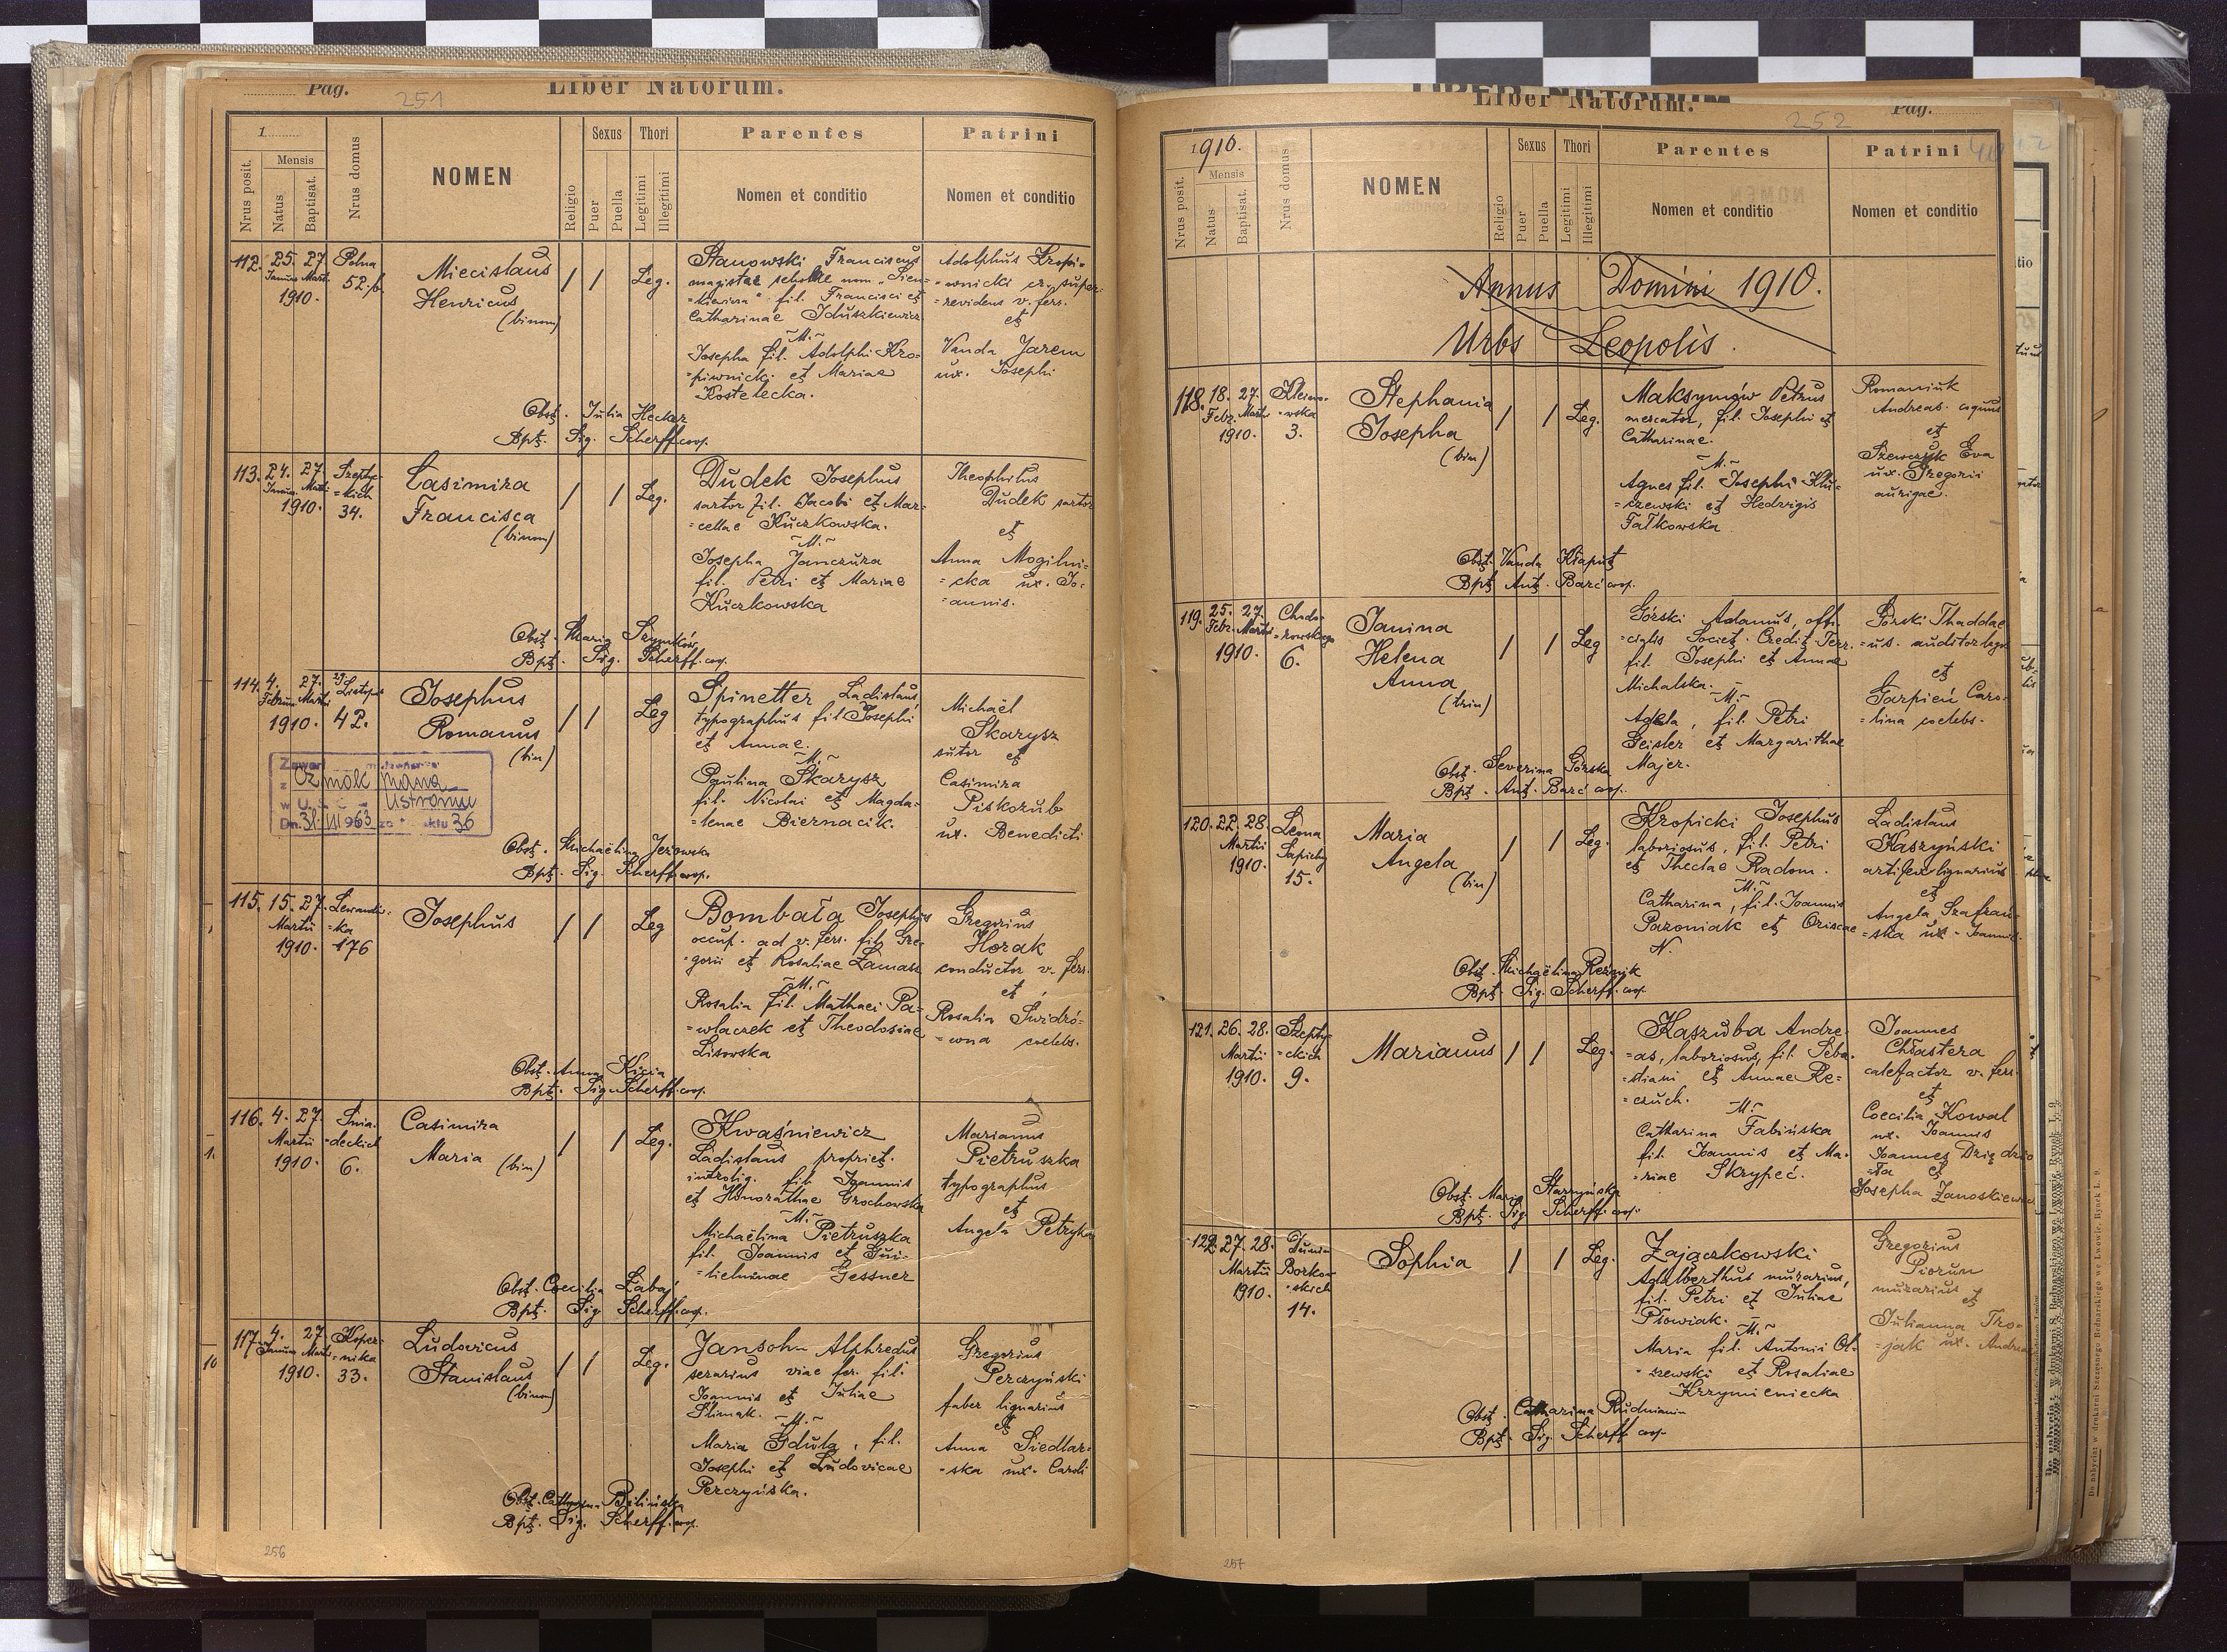 Pag.
251
Liber Natorum.
1
Nrus posit.
Mensis
Natus
Baptisat.
Nrus domus
NOMEN
Religio
Sexus
Puer
Puella
Thori
Legitimi
Illegitimi
Parentes
Nomen et conditio
Patrini
Nomen et conditio
112. 25. 27.
1910.
Polna
52.b.
Miecislaus
Henricus
(binom)
/ / Leg.
Stanowski Franciscus
magister scholae nom. Sien-
=kiewicza. fil. Francisci et
Catharinae Iduszkiewicz
~M.~
Josepha fil. Adolphi Kro-
=piwnicki et Mariae
Kostelecka.
Adolphus Kropi-
=wnicki super
=revidens v. fers.
et
Vanda Jarem
ux. Josephi
Obst. Julia Hecker
Bpt. Sig. Scherff coop.
113. 24. 27.
1910.
Szeptyc-
=kich
34.
Casimira
Francisca
(binom)
/ / Leg.
Dudek Josephus
sartor fil. Jacobi et Mar-
=cellae Kuczkowska.
~M.~
Josepha Janczura
fil. Petri et Mariae
Kuczkowska
Theophilus
Dudek sartor
et
Anna Mogilni-
=cka ux. Jo-
=annis.
Obst. Maria Szymków
Bpt. Sig. Scherff coop.
114. 4. 27.
1910.
29 Listopad
42.
Josephus
Romanus
(bin)
/ / Leg
Spinetter Ladislaus
typographus fil. Josephi
et Annae.
~M.~
Paulina Skarysz
fil. Nicolai et Magda-
=lenae Biernacik.
Michaël
Skarysz
sutor et
Casimira
Piskozub
ux. Benedicti
Ustroniu
Dn. 31.VII 1963 za Nr aktu 36
Obst. Michaëlina Jezowska
Bpt. Sig. Scherff coop.
115. 15. 27.
Martii
1910.
Lewandów-
=ka
176
Josephus
/ / Leg
Bombała Josephus
occup. ad v. fers. fil. Gre-
=gorii et Rosaliae Łamasz
~M.~
Rosalia fil. Mathaei Pa-
=wlaczek et Theodosiae
Lisowska
Gregorius
Horak
conductor v. fers.
et
Rosalia Świdró-
=wna coelebs.
Obst. Anna Kicia
Bpt. Sig. Scherff coop.
116. 4. 27.
Martii
1910.
Śnia-
=deckich
6.
Casimira
Maria (bin)
/ / Leg.
Kwaśniewicz
Ladislaus propriet.
introlig. fil. Joannis
et Honorathae Grochowska
~M.~
Michaëlina Pietruszka
fil. Joannis et Gui-
=lielminae Gessner
Marianus
Pietruszka
typographus
et
Angela Petryka
Obst. Coecilia Zabaj
Bpt. Sig. Scherff coop.
117. 4. 27.
1910.
Koper-
=nika
33.
Ludovicus
Stanislaus
(binom)
/ / Leg.
Jansohn Alphredus
serarius viae fer. fil.
Joannis et Juliae
Slimak.
~M.~
Maria Gduła, fil.
Josephi et Ludovicae
Perczyńska.
Gregorius
Perczyński
faber lignarius
et
Anna Siedlar-
=ska ux. Caroli
Obst. Catharina Bilińska
Bpt. Sig. Scherff coop.
256
Liber Natorum.
252
Pag.
1910.
Nrus posit.
Mensis
Natus
Baptisat.
Nrus domus
NOMEN
Religio
Sexus
Puer
Puella
Thori
Legitimi
Illegitimi
Parentes
Nomen et conditio
Patrini
Nomen et conditio
Annus Domini 1910.
Urbs Leopolis.
118. 18. 27.
Febr. Martii
1910.
Klono-
=wska
3.
Stephania
Josepha
(bin)
/ / Leg.
Maksymów Petrus
mercator, fil. Josephi et
Catharinae.
~M.~
Agnes fil. Josephi Klu-
=czewski et Hedvigis
Fałkowska
Romaniuk
Andreas
et
Szewczyk Eva
ux. Gregorii
aurigae.
Obst. Vanda Kłaput
Bpt. Ant. Barć coop.
119. 25. 27.
Febr. Martii
1910.
Chodo-
=rowskiego
6.
Janina
Helena
Anna
(trin)
/ / Leg
Górski Adamus, offi-
=cialis Societ. Credit. Terr.
fil. Josephi et Annae
Michalska.
~M.~
Adela, fil. Petri
Geisler et Margarithae
Majer.
Górski Thaddae-
=us. auditor legu
et
Garpień Caro-
=lina coelebs.
Obst. Severina Górska
Bpt. Ant. Barć coop.
120. 22. 28.
Martii
1910.
Leona
Sapiehy
15.
Maria
Angela
(bin)
/ / Leg.
Kropicki Josephus
laboriosus, fil. Petri
et Theclae Radom.
~M.~
Catharina, fil. Joannis
Paroniak et Oriscae
N.
Ladislaus
Kaszyński
artifex lignarius
et
Angela Szafrań-
=ska ux. Joannis.
Obst. Michaëlina Reznik
Bpt. Sig. Scherff coop.
121. 26. 28.
Martii
1910.
Szepty-
=ckich
9.
Marianus
/ / Leg.
Kaszuba Andre-
=as, laboriosus, fil. Seba-
=stiani et Annae Re-
=czuch.
~M.~
Catharina Fabińska
fil. Joannis et Ma-
=riae Skrypeć.
Joannes
Chłastera
calefactor v. fers.
et
Coecilia Kowal
ux. Joannis
Joannes Dziędzio
=Ta et
Josepha Janoskiewicz
Obst. Maria Starzyńska
Bpt. Sig. Scherff coop.
122. 27. 28.
Martii
1910.
Dunin
Borkow-
=skich
14.
Sophia
/ / Leg.
Zajączkowski
Adalberthus murarius,
fil. Petri et Juliae
Płowiak.
~M.~
Maria fil. Antonii Ol-
=szewski et Rosaliae
Krzymieniecka
Gregorius
Piorun
murarius
et
Julianna Tro-
=jak ux. Andreae
Obst. Catharina Rudnianin
Bpt. Sig. Scherff coop.
257